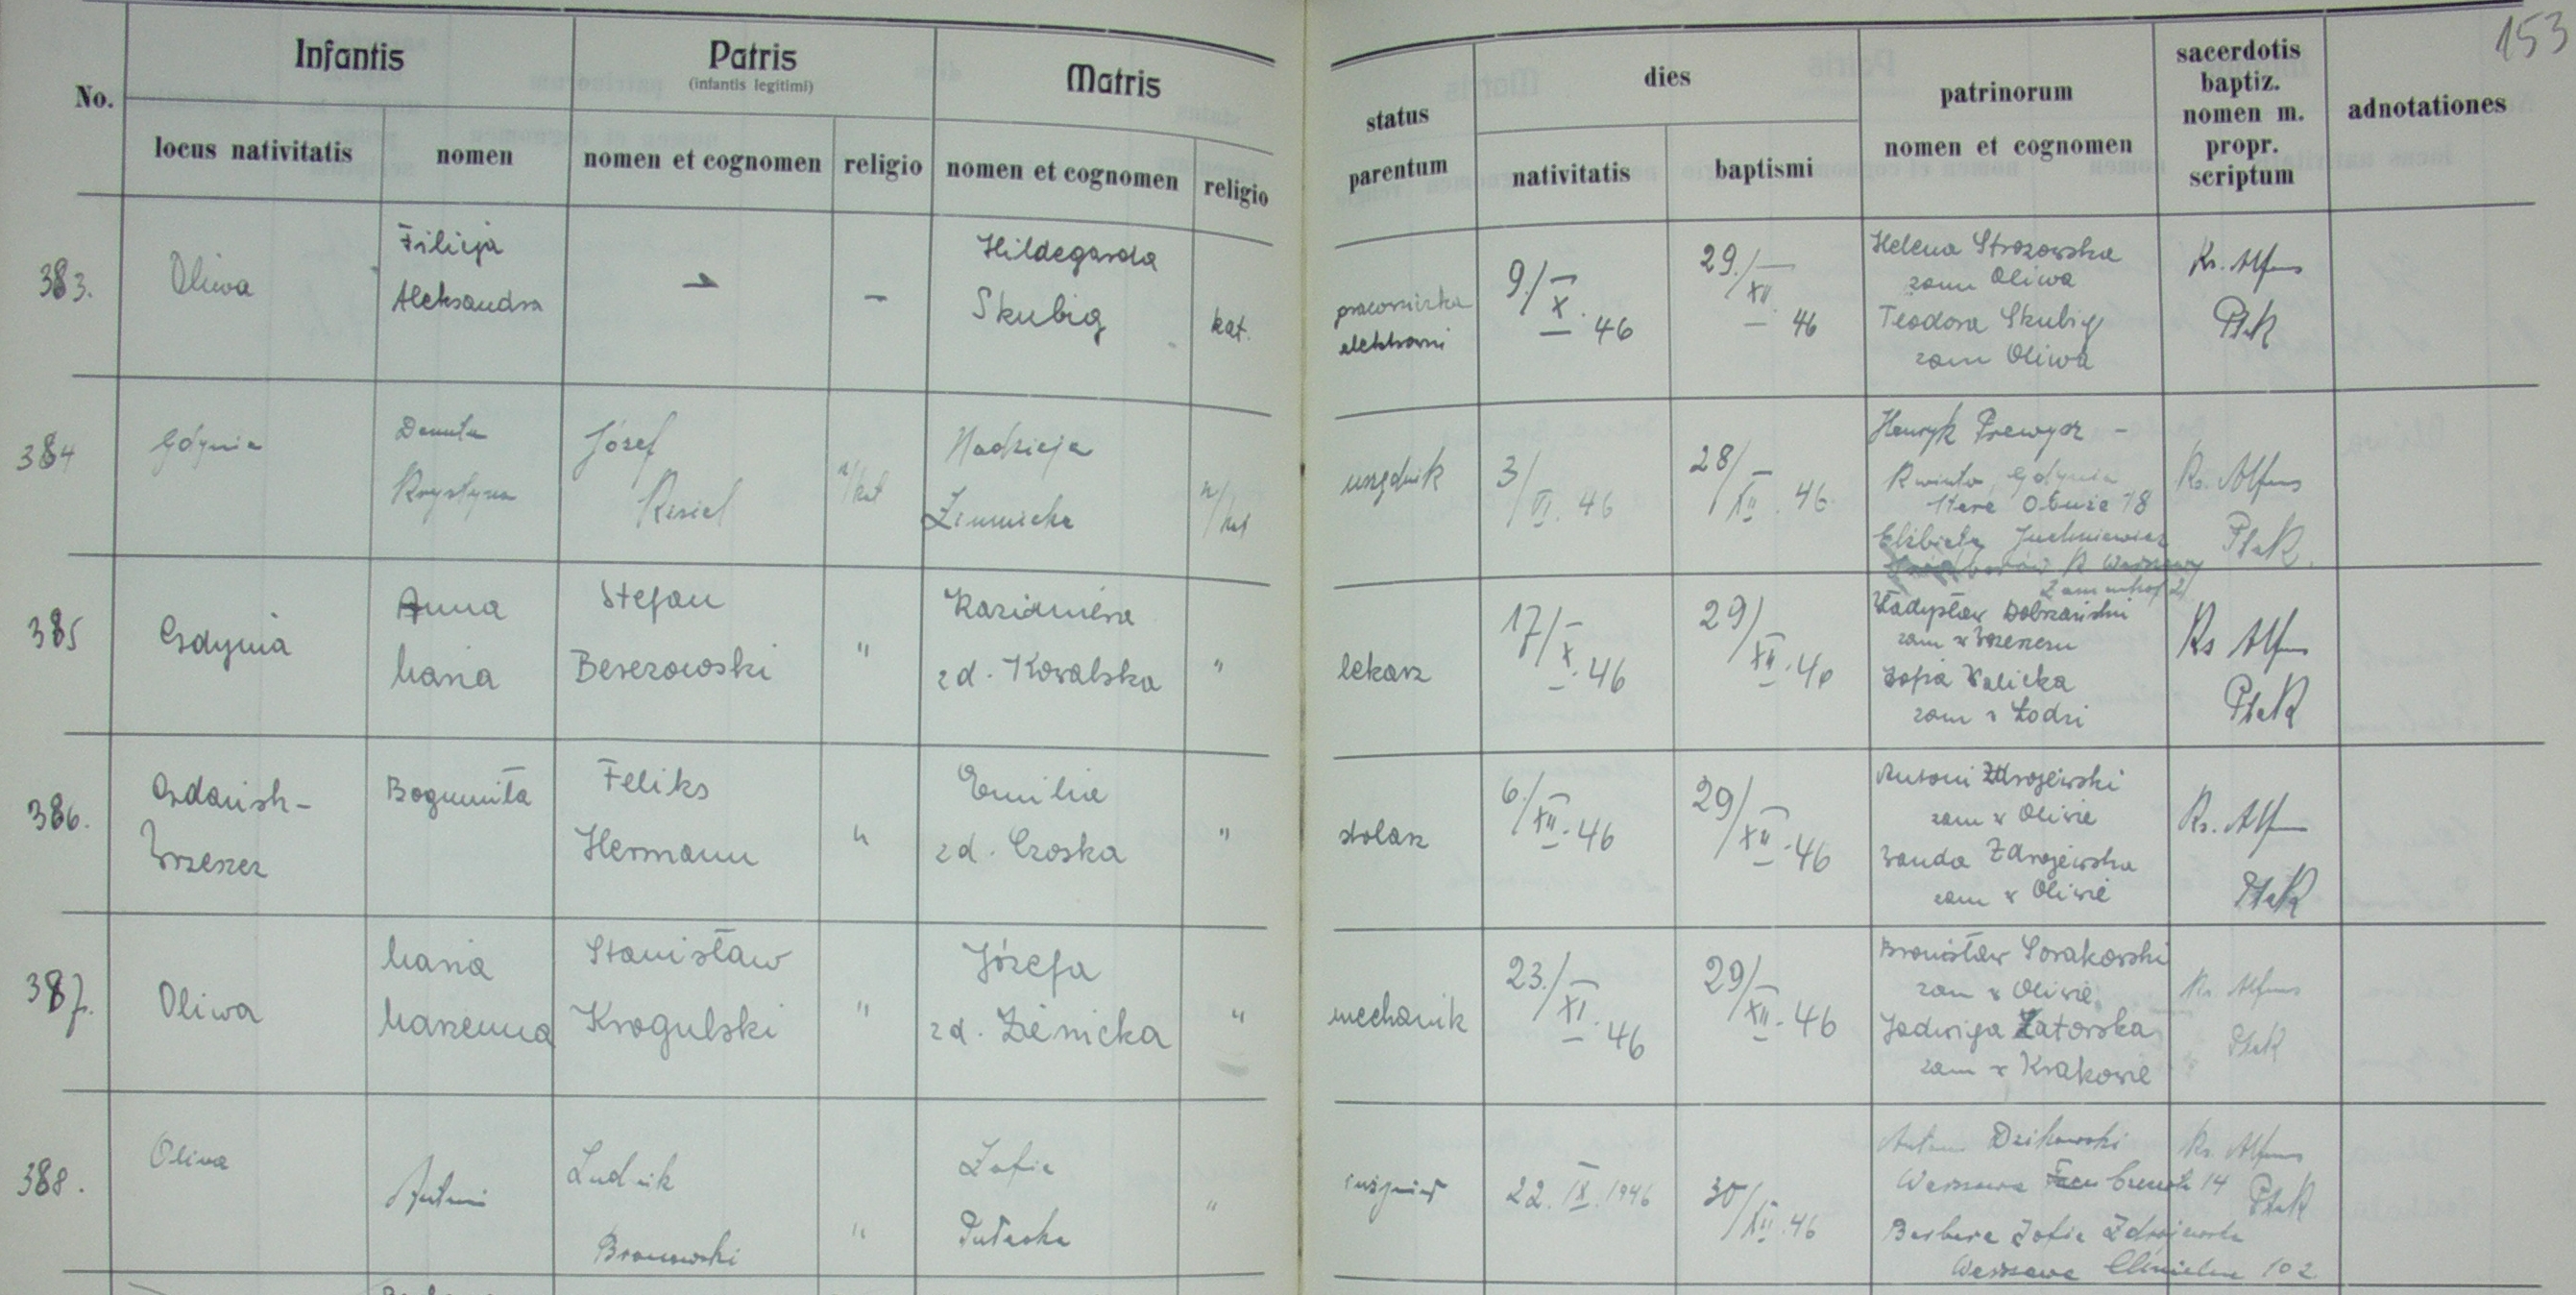 153
No.
Infantis
Patris
(infantis legitimi)
Matris
status parentum
dies
patrinorum nomen et cognomen
sacerdotis baptiz. nomen m. propr. scriptum
adnotationes
locus nativitatis
nomen
nomen et cognomen
religio
nomen et cognomen
religio
nativitatis
baptismi
383.
Oliwa
Filicja
Aleksandra
—
Hildegarda
Skubig
kat.
pracowniczka
elektrowni
9./X. 46
29./XII. 46
Helena Strozowska
zam Oliwa
Teodora Skubig
zam Oliwa
Ks. Alfons
Ptak
384
Gdynia
Danuta
Krystyna
Józef
Kisiel
r/kat
Nadzieja
Zimnicka
r/kat
urzędnik
3/VI. 46
28/XII. 46
Henryk Prewysz -
Kwinto, Gdynia
Stare Obłuże 18
Elżbieta Juchniewicz
K Warszawy
Ks. Alfons
Ptak.
385
Gdynia
Anna
Maria
Stefan
Berezowski
"
Kazimiera
zd. Kowalska
"
lekarz
17/X. 46
29/XII. 46
Władysław Dobrzański
zam w Wrzeszczu
Zofia Walicka
zam w Łodzi
Ks Alfons
Ptak
386.
Gdańsk-
Wrzeszcz
Bogumiła
Feliks
Hermann
"
Emilia
zd. Czoska
"
stolarz
6./XII. 46
29/XII. 46
Antoni Zdrojewski
zam w Oliwie
Wanda Zdrojewska
zam w Oliwie
Ks. Alfons
Ptak
387.
Oliwa
Maria
Marzenna
Stanisław
Krogulski
"
Józefa
zd. Zienicka
"
mechanik
23./XI. 46
29/XII. 46
Bronisław Sorakowski
zam w Oliwie
Jadwiga Zatorska
zam w Krakowie
Ks. Alfons
Ptak
388.
Oliwa
Antoni
Ludwik
Bronowski
"
Zofia
"
inżynier
22. IX. 1946
30/XII. 46
Antoni Dzikowski
Warszawa 14
Barbara Zofia Zdrojewska
Warszawa Chmielna 102
Ks. Alfons
Ptak